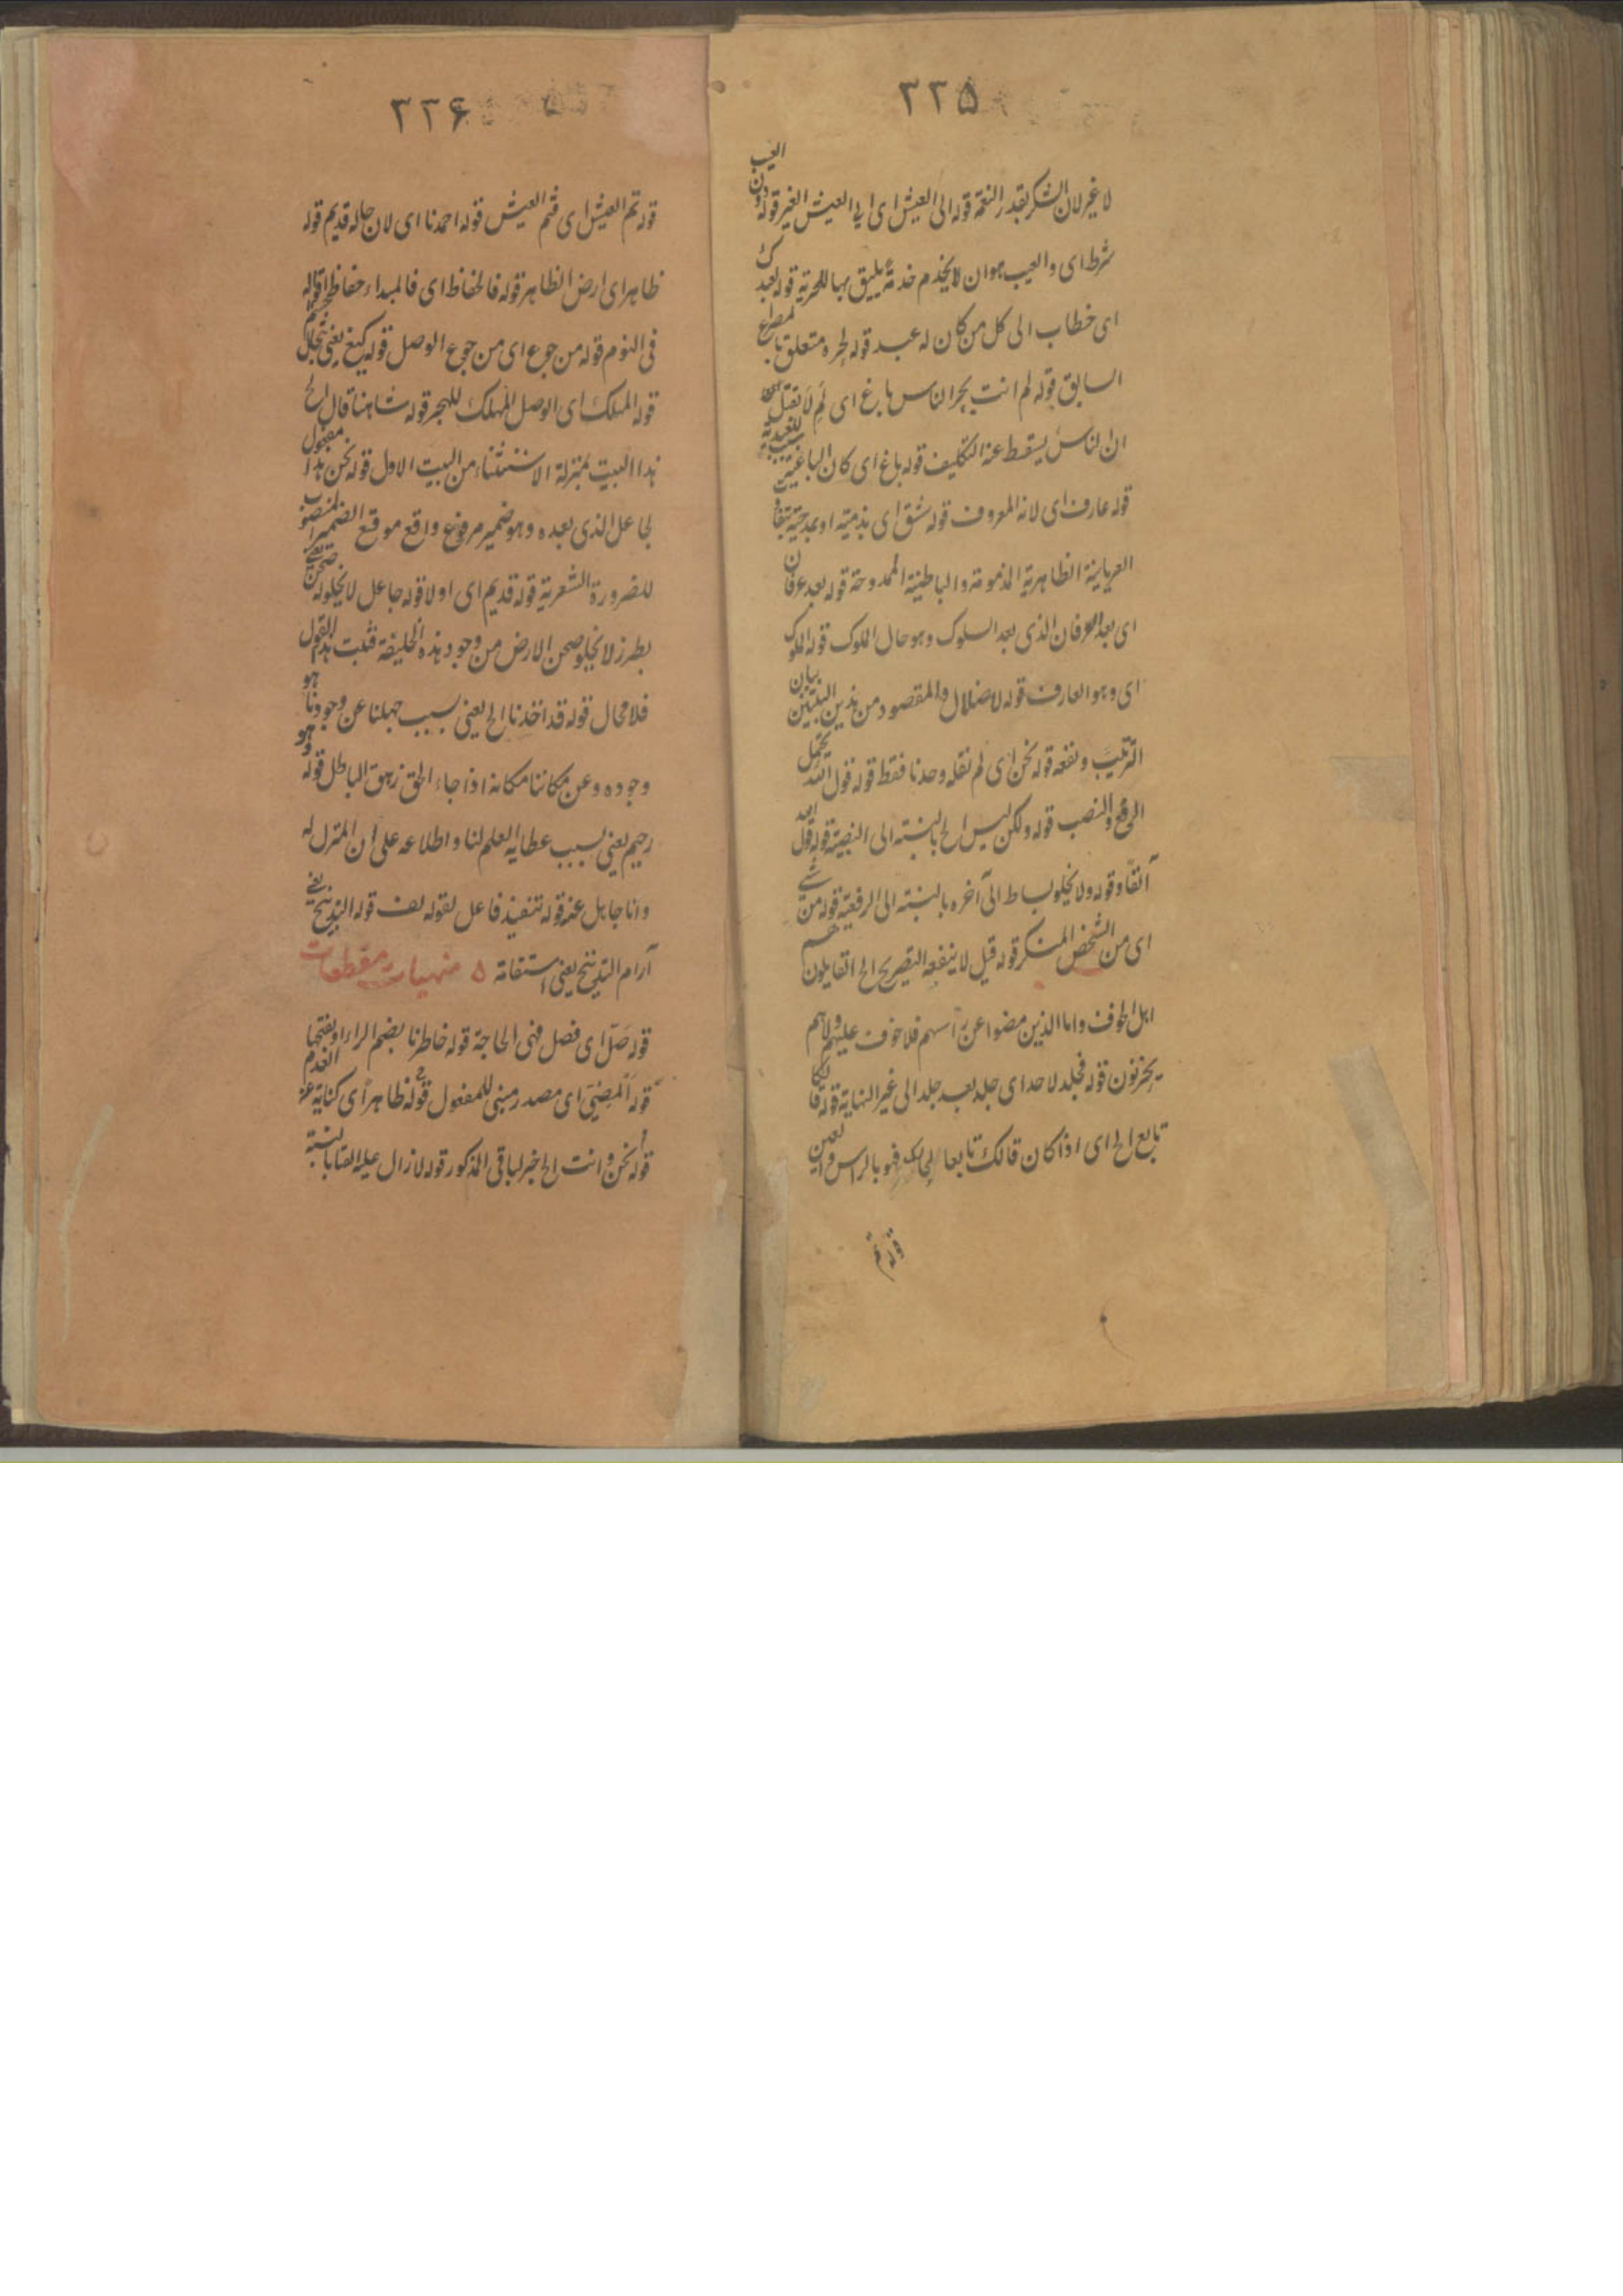 ٢٢۵
لا غير لان الشكر بقدر النعمة قوله الى العيش اى الى العيش الغير قوله دون العيب
شرط اى والعيب هو ان لا يخدم خدمة يليق بها للحرية قوله لعبدك
اى خطاب الى كل من كان له عبد قوله لحره متعلق بالمصراع
السابق قوله لم انت بحر اناس باغ اى لم لا تقتل
ان الناس يسقط عنه التكليف قوله باغ اى كان الباغية
قوله عارف اى لانه المعروف قوله شق اى بذميته او بمدحيته
العريانية الظاهرية المذمومة والباطنية الممدوحة قوله بعد عرفان
اى بعد العرفان الذى بعد السلوك وهو حال الملوك قوله الملوك
اى وهو العارف قوله لاضلال والمقصود من هذين البيتين بيان
الترتيب ونفعه قوله نحن اى لم نقله وحدنا فقط قوله قول الله يحتمل
الرفع والنصب قوله ولكن ليس الخ بالنسبة الى النصبية قوله قول
آنفا وقوله ولا يخلو بساط الى آخره بالنسبة الى الرفعية قوله من شے
اى من الشخص المنكر قوله قيل لا ينفعه التصريح الخ القايلون هم
اهل الخوف واما الذين مضوا عن راسهم فلا خوف عليهم ولا هم
يحزنون قوله فجلد لاحد اى جلد بعد جلد الى غير النهاية قوله قالكا
تابع الخ اى اذا كان قالك تابعا لحالك فهو بالراس والعين
قوله تم
٢٢۶
قوله تم العيش اى فتم العيش قوله احمدنا اى لان حاله قديم قوله
ظاهر اى ارض الظاهر قوله فالحفاظ اى فالمبداء حفاظ قوله
فى النوم قوله من جوع اى من جوع الوصل قوله
قوله المهلك اى الوصل المهلك للهجر قوله شاهنا قال الخ
هذا البيت بمنزلة الاستثناء من البيت الاول قوله نحن هذا مفعول
لجاعل الذى بعده وهو ضمير مرفوع واقع موقع الضمير المنصوب
للضرورة الشعرية قوله قديم اى اولا قوله جاعل لا يخلو له صحن يعنى
بطرز لا يخلو صحن الارض من وجود هذه الخليفة فثبت قدم القول
فلا محال قوله قد اخذنا الخ يعنى بسبب جهلنا عن وجودنا هو
وجوده وعن مكاننا مكانه اذا جاء الحق زهق الباطل قوله وهو
رحيم يعنى بسبب عطايه العلم لنا واطلاعه على ان المنزل له
وانا جاهل عنه قوله تنفيذ فاعل لقوله لف قوله التدبيح يعنى
آرام التدبيح يعنى استقامة ۵ منهيات مقطعات
قوله صل اى فصل فهى الحاجة قوله خاطرنا بضم الراء او بفتحها
قوله المضى اى مصدر مبنى للمفعول قوله ظاهرا اى كناية عن العدم
قوله نحن وانت الخ خبر لباقى المذكور قوله لا زال عليه العتاب بالنسبة